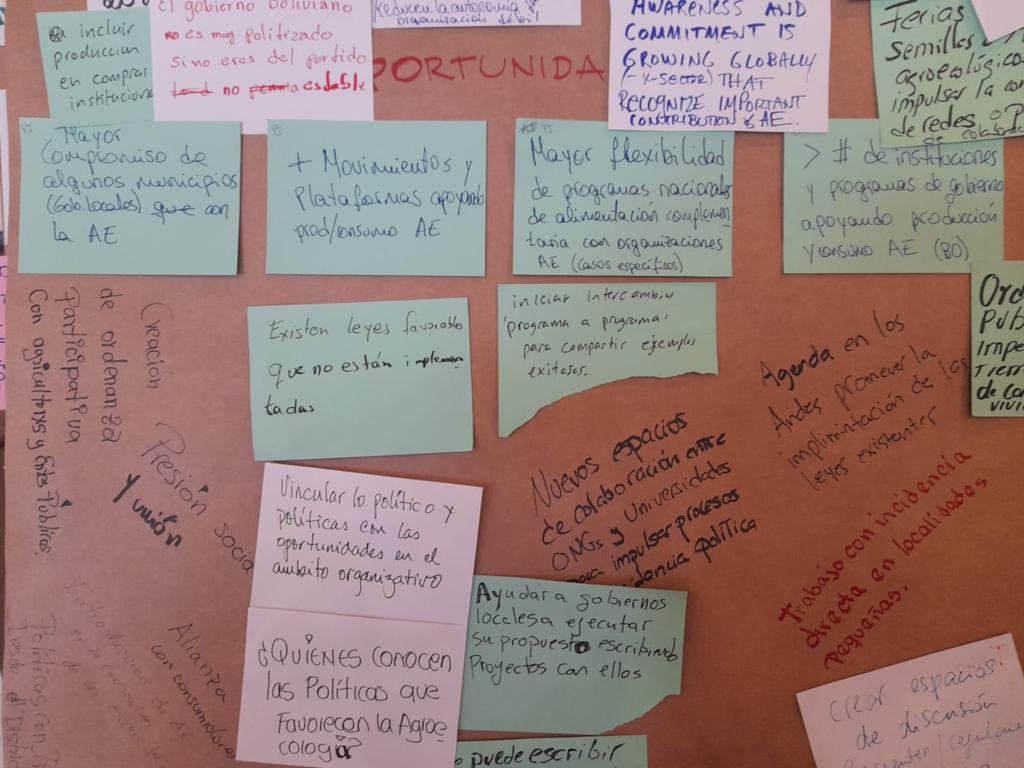 incluir
produccion
en compras
El gobierno Boliviano
es muy politizado
si no eres del partido
no estable
Reducen la autonomía
PORTUNIDA
AWARENESS AND
COMMITMENT IS
GROWING GLOBALLY
(-X-SECTOR) THAT
RECOGNIZE IMPORTANT
CONTRIBUTION of AE.
Ferias
Semillas
agroecológico
impulsar la
de redes
Mayor
Compromiso de
algunos municipios
(Gob. locales) que con
la AE
+ Movimientos y
Plataformas apoyando
prod/consumo AE
Mayor flexibilidad
de programas nacionales
de alimentación complemen
taria con organizaciones
AE (casos específicos)
> # de instituciones
y programas de gobierno
apoyando producción
y consumo AE (BO)
Existen leyes favorables
que no están implemen
tadas
iniciar intercambio
'programa a programa'
para compartir ejemplos
exitosos.
Agenda en los
Andes promover la
implimintación de las
leyes existentes
Creación
de ordenanza
Participativa
Con agricultores y Entes Públicos.
Presión social
y unión
Nuevos espacios
de colaboración entre
ONGs y Universidades
para impulsar procesos
política
Trabajo con incidencia
directa en localidades
pequeñas.
Vincular lo político y
políticas con las
oportunidades en el
ámbito organizativo
¿QUIÉNES CONOCEN
las Políticas que
Favorecen la Agroe
cología?
Ayudar a gobiernos
locales a ejecutar
su propuesto escribiendo
Proyectos con ellos
Alianza
con consumidores
Políticas con
puede escribir
Crear espacios
de discusión